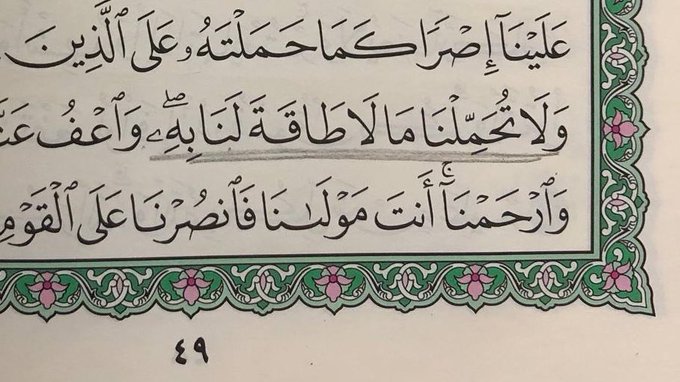 عَلَيْنَآ إِصْرًا كَمَا حَمَلْتَهُۥ عَلَى ٱلَّذِينَ
وَلَا تُحَمِّلْنَا مَا لَا طَاقَةَ لَنَا بِهِۦۖ وَٱعْفُ
وَٱرْحَمْنَآۚ أَنتَ مَوْلَىٰنَا فَٱنصُرْنَا عَلَى ٱلْقَوْمِ
٤٩